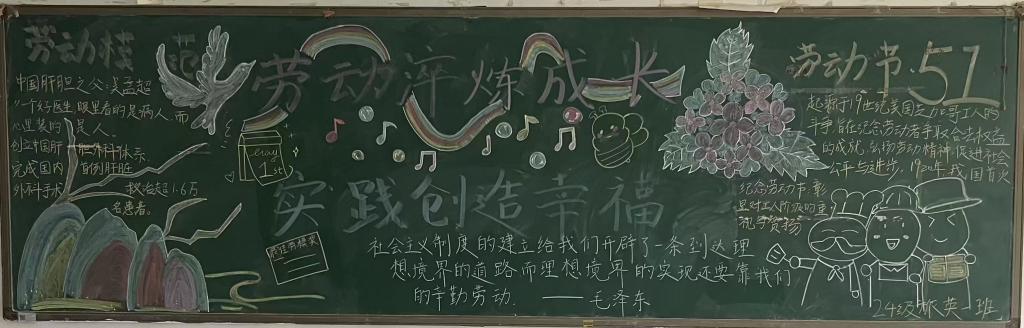 劳动模范
中国肝胆之父:吴孟超
"一个好医生,眼里看的是病人,而
心里装的 是 人。
创立中国肝 外科体系
完成国内 首例肝脏
外科手术 救治超1.6万
名患者。
劳动淬炼成长
实践创造幸福
May
1st
社会主义制度的建立给我们开辟了一条到达理
想境界的道路而理想境界的实现还要靠我们
的辛勤劳动.
——毛泽东
劳动节.51
起源于19世纪美国芝加哥工人的
斗争,旨在纪念劳动者争取合法权益
的成就,弘扬劳动精神,促进社会
公平与进步,1920年,我国首次
纪念劳动节,
是对工人阶级的
祝与赞扬
24级 英一班